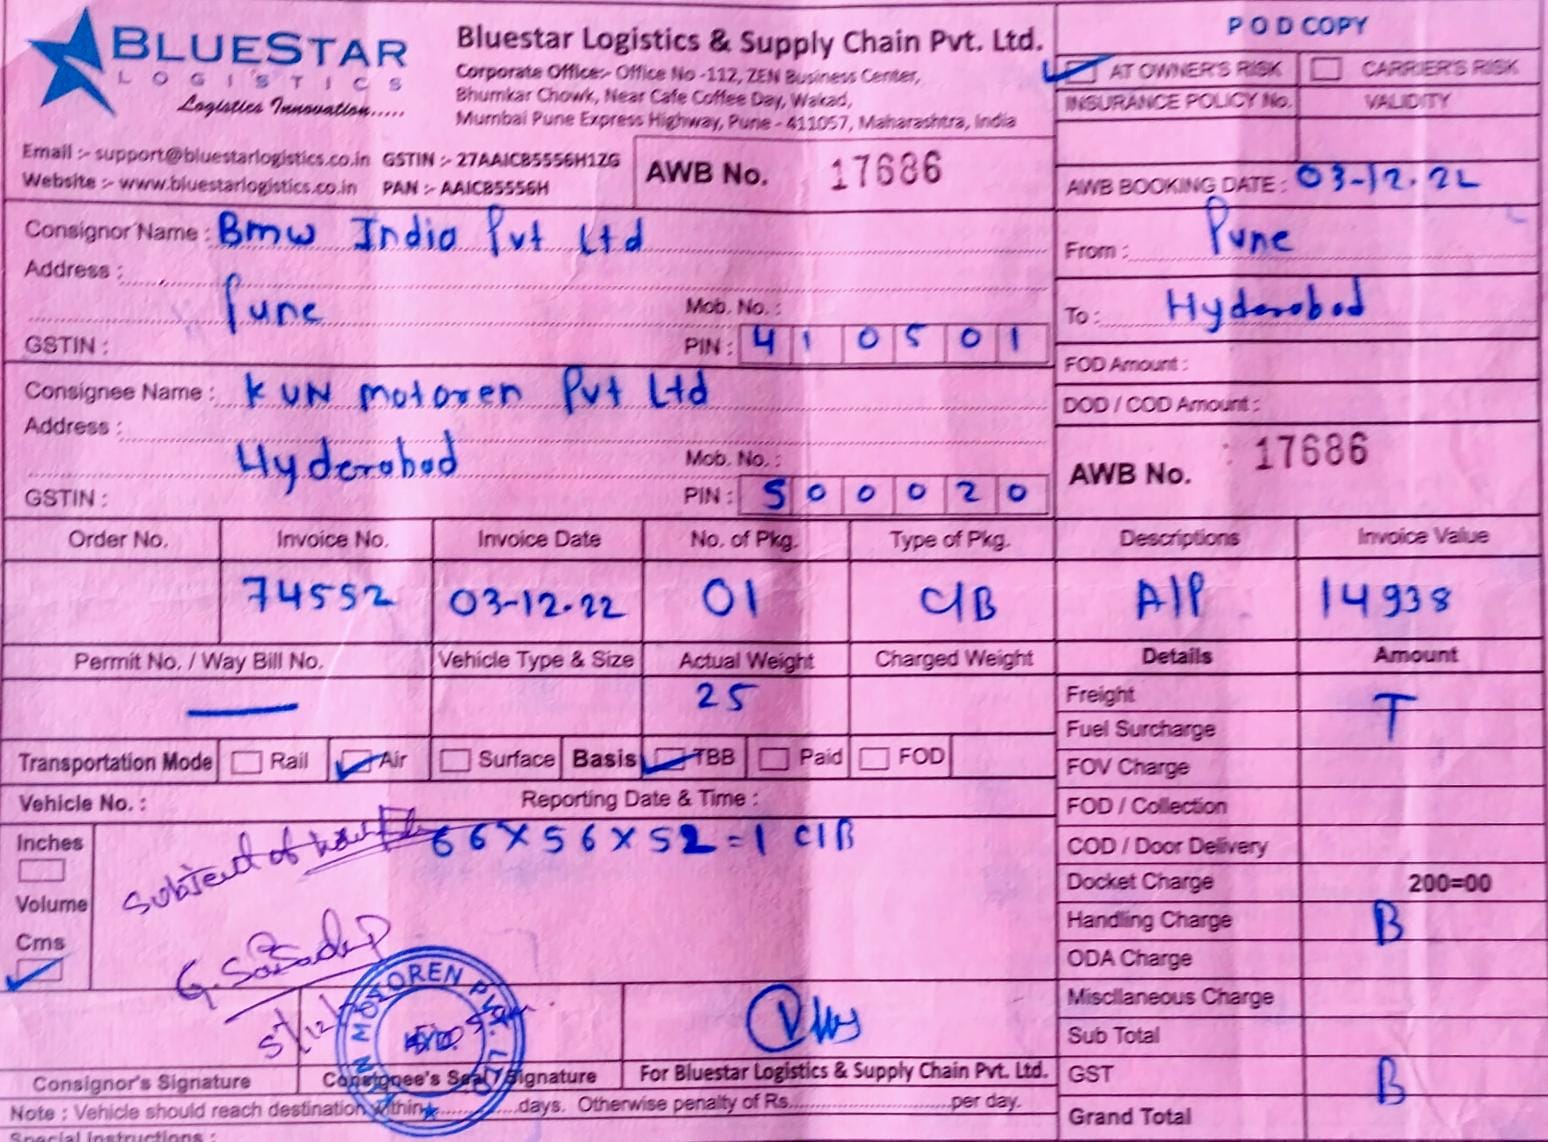 BLUESTAR
LOGISTICS
Logistics Innovation.....
Bluestar Logistics & Supply Chain Pvt. Ltd.
Corporate Office:- Office No -112, ZEN Business Center,
Bhumkar Chowk, Near Cafe Coffee Day, Wakad,
Mumbai Pune Express Highway, Pune - 411057, Maharashtra, India
POD COPY
AT OWNER'S RISK CARRIER'S RISK
INSURANCE POLICY No. VALIDITY
Email :- support@bluestarlogistics.co.in GSTIN :- 27AAICB5556H1ZG
Website :- www.bluestarlogistics.co.in PAN :- AAICB5556H
AWB No. 17686
AWB BOOKING DATE : 03-12.22
Consignor Name : Bmw India Pvt Ltd
Address :
Pune
Mob. No. :
GSTIN : PIN : 410501
From : Pune
To : Hyderabad
FOD Amount :
DOD / COD Amount :
AWB No. : 17686
Consignee Name : KUN Motoren Pvt Ltd
Address :
Hyderabad
Mob. No. :
GSTIN : PIN : 500020
Order No. Invoice No. Invoice Date No. of Pkg. Type of Pkg. Descriptions Invoice Value
74552 03-12.22 01 C/B A/P 14938
Permit No. / Way Bill No. Vehicle Type & Size Actual Weight Charged Weight Details Amount
25
Freight T
Fuel Surcharge
Transportation Mode Rail Air Surface Basis TBB Paid FOD
FOV Charge
Vehicle No. : Reporting Date & Time :
FOD / Collection
Inches
66X56X52=1 C/B
COD / Door Delivery
Docket Charge 200=00
Volume
Handling Charge B
Cms
ODA Charge
Miscllaneous Charge
Sub Total
GST B
Grand Total
5/12/
MOTOREN PVT. LTD
Consignor's Signature Consignee's Seal / Signature For Bluestar Logistics & Supply Chain Pvt. Ltd.
Note : Vehicle should reach destination within............days. Otherwise penalty of Rs..............................per day.
Special Instructions :